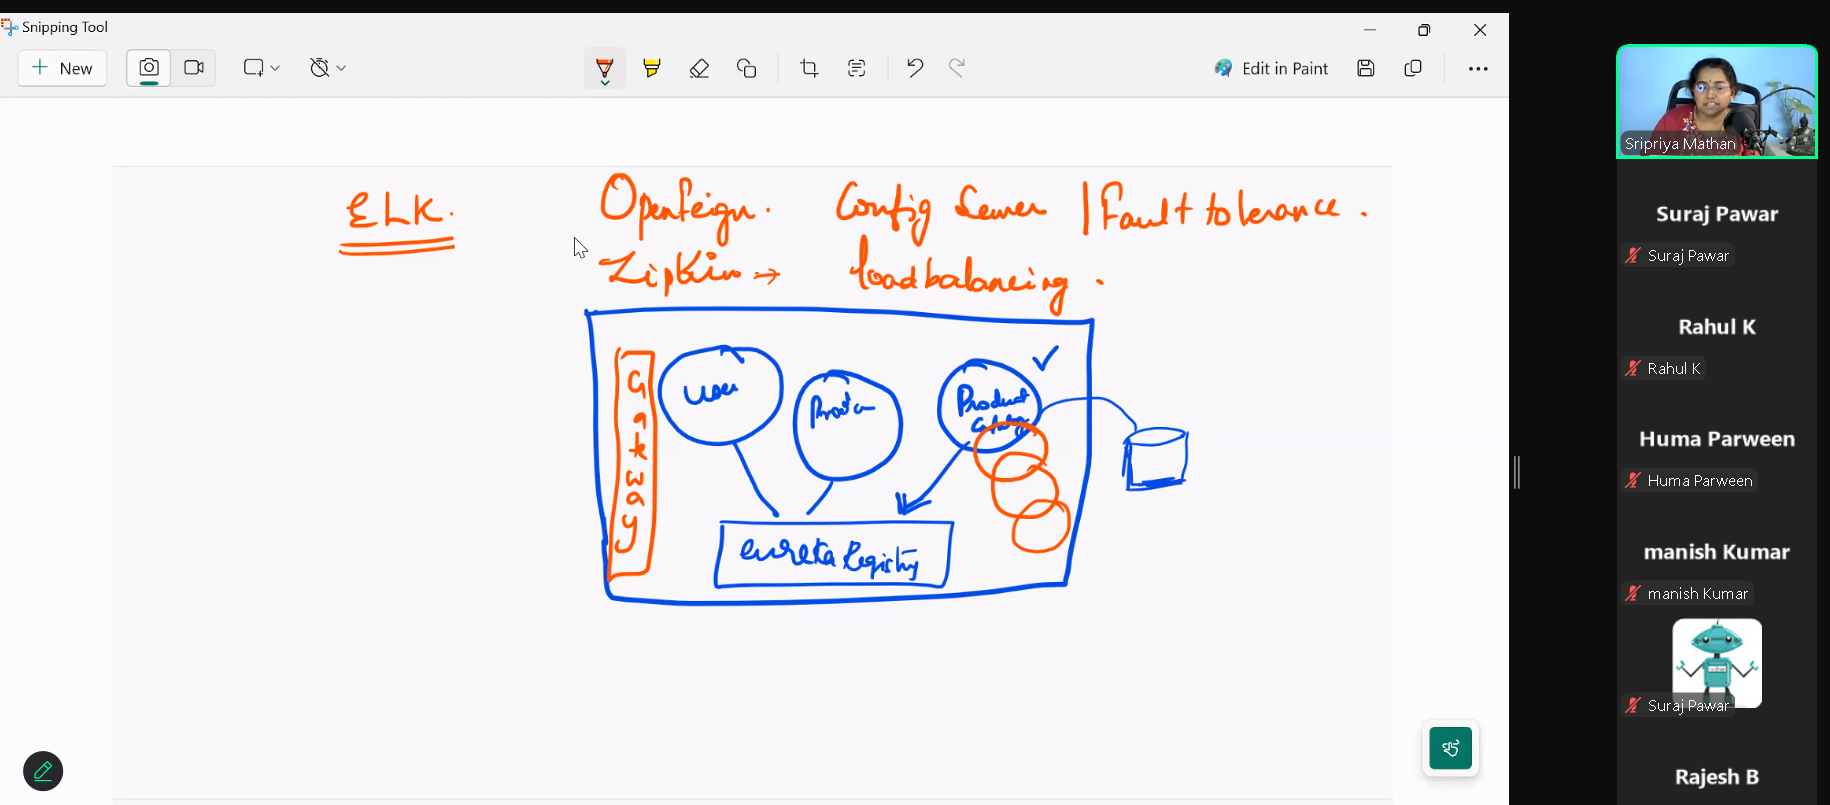 Snipping Tool
New
Edit in Paint
ELK.
OpenFeign. Config Server | Fault tolerance.
Zipkin → loadbalancing.
Gatway
User
Product
Catalog
eureka Registry
Sripriya Mathan
Suraj Pawar
Suraj Pawar
Rahul K
Rahul K
Huma Parween
Huma Parween
manish Kumar
manish Kumar
Suraj Pawar
Rajesh B